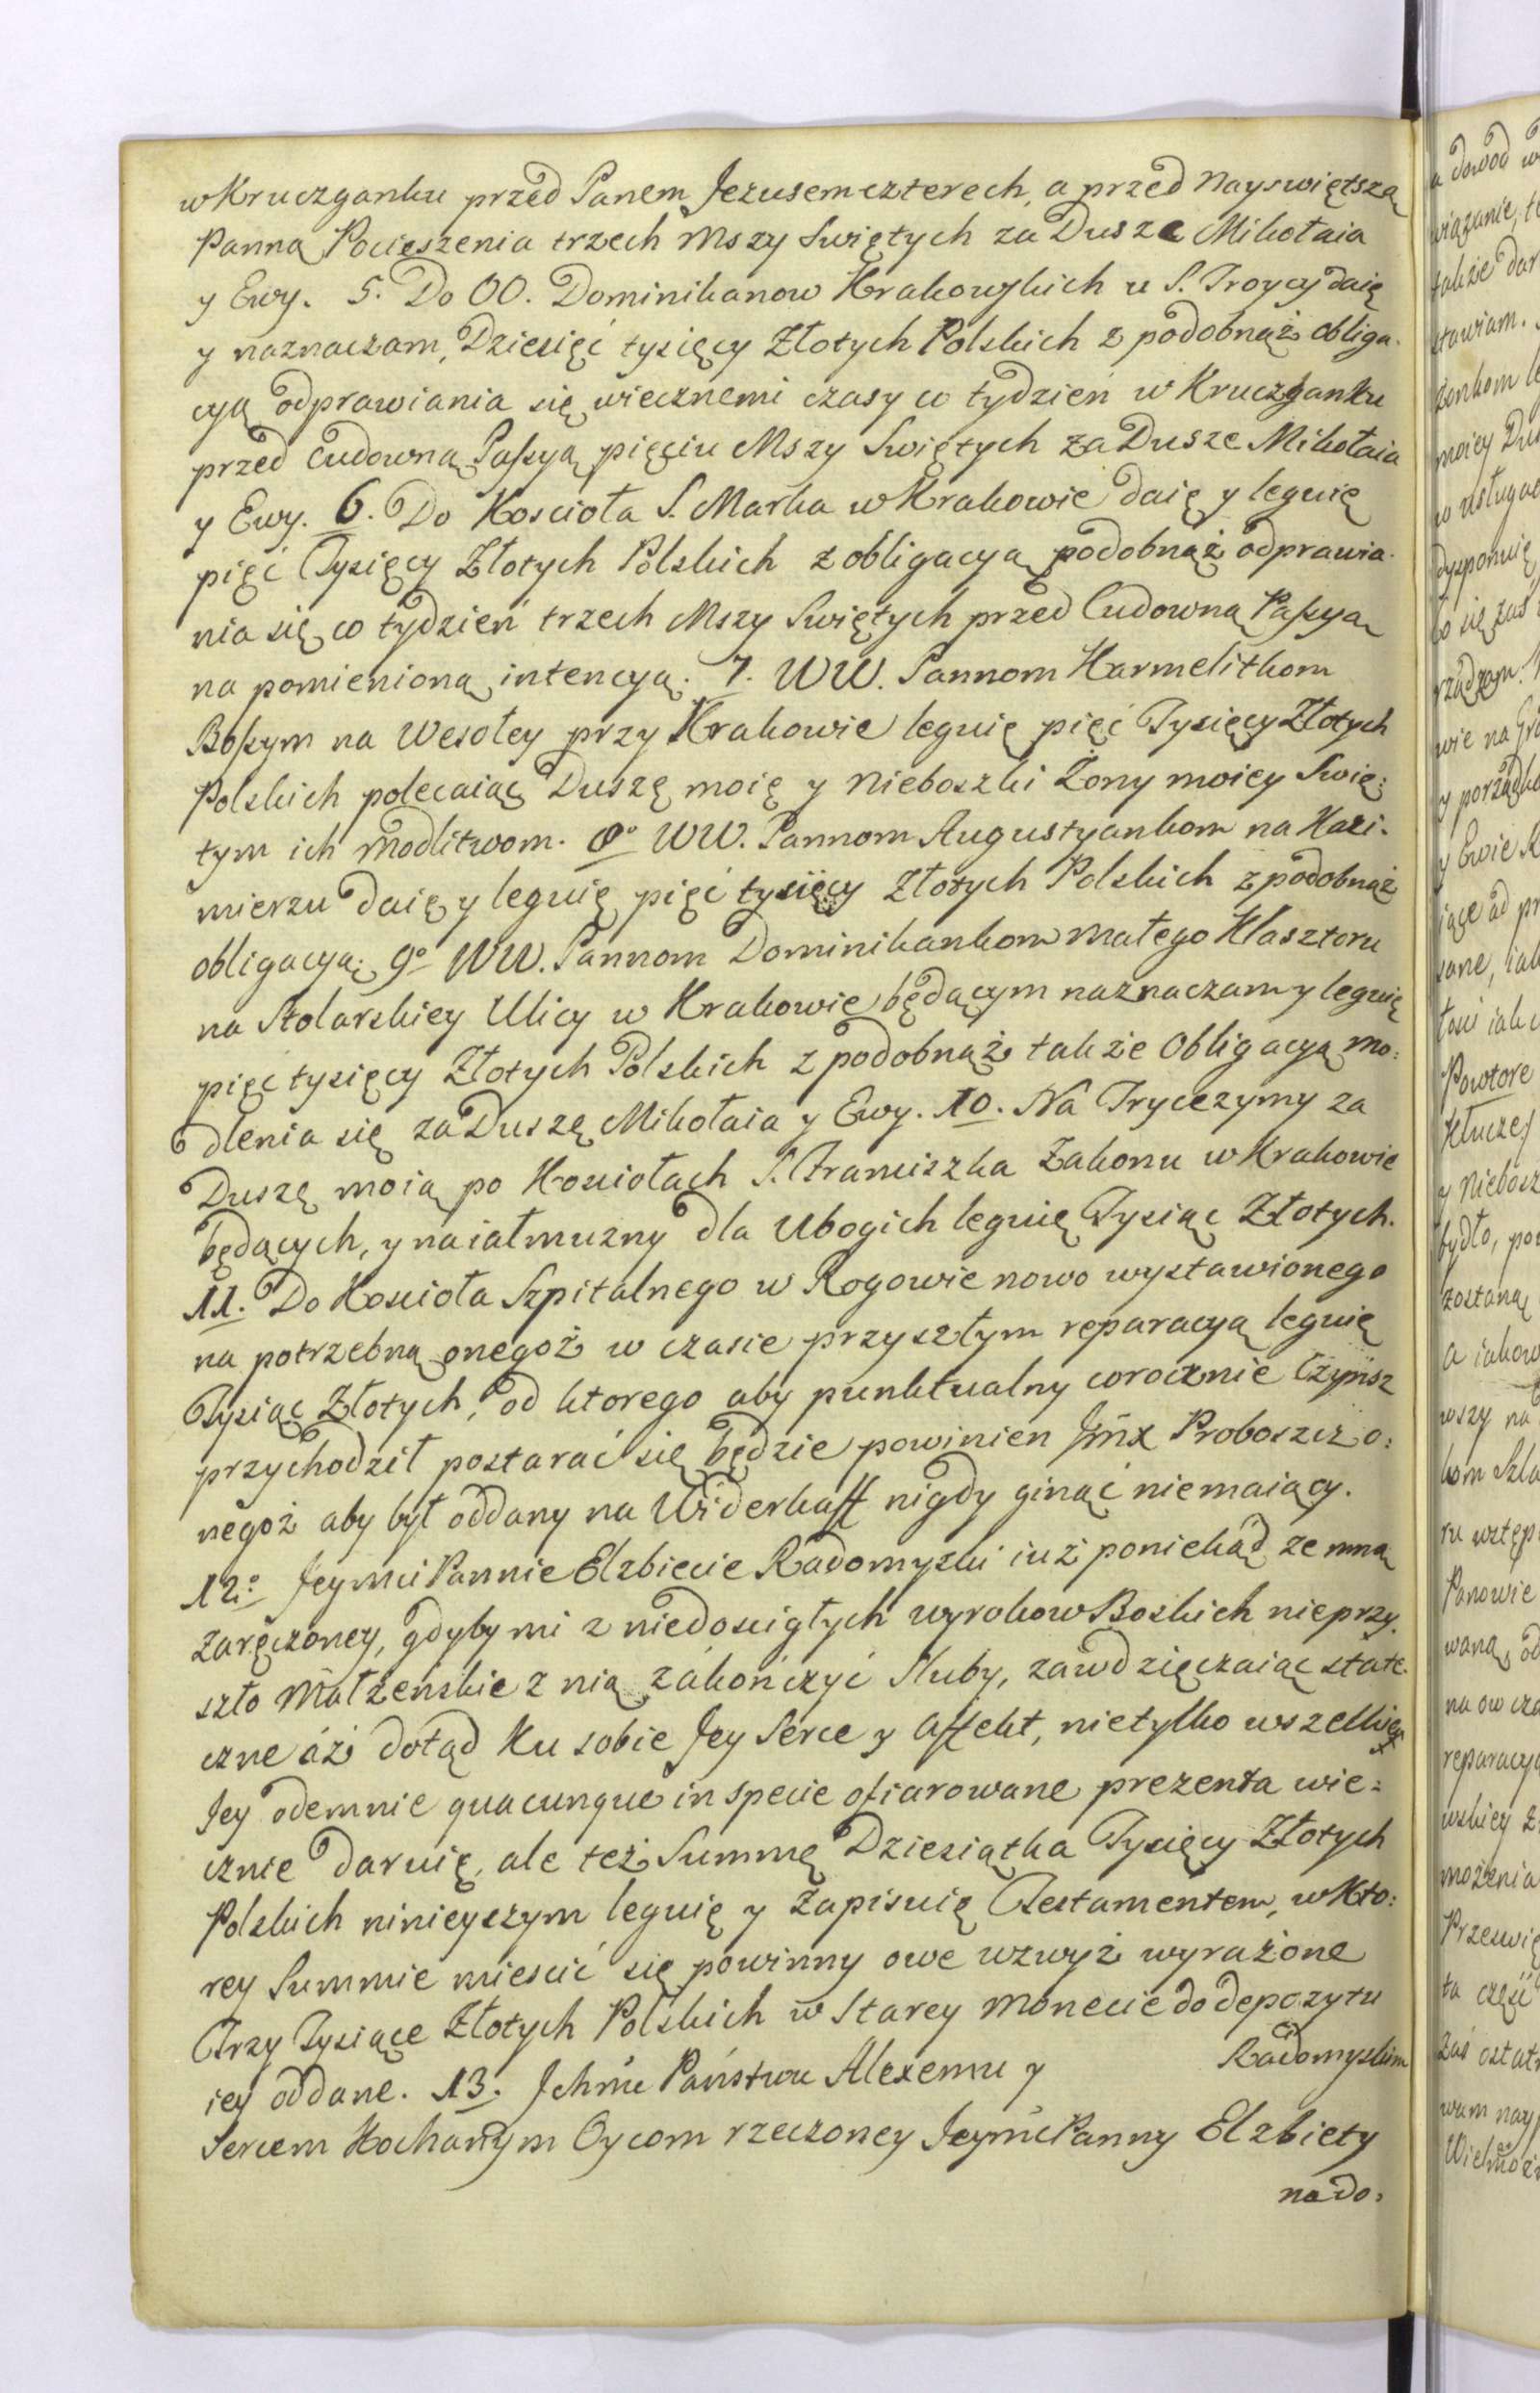 w Kruczganku przed Panem Jezusem czterech, a przed Nayswiętszą
Panną Pocieszenia trzech Mszy Swiętych za Dusze Mikołaia
y Ewy. 5. Do OO. Dominikanow Krakowskich u S. Troycy daię
y naznaczam, Dziesięć tysięcy Złotych Polskich z podobnąż obliga-
cyą odprawiania się wiecznemi czasy co tydzień w Kruczganku
przed Cudowną Passyą pięciu Mszy Swiętych za Dusze Mikołaia
y Ewy. 6. Do Koscioła S. Marka w Krakowie daię y leguię
pięć Tysięcy Złotych Polskich z obligacyą podobnąż odprawia-
nia się co tydzień trzech Mszy Swiętych przed Cudowną Passyą
na pomienioną intencyą. 7. WW. Pannom Karmelitkom
Bossym na Wesołey przy Krakowie leguię pięć Tysięcy Złotych
Polskich polecaiąc Duszę moię y Nieboszki Żony moiey Swię:
tym ich modlitwom. 8o WW. Pannom Augustyankom na Kazi-
mierzu daię y leguię pięć tysięcy Złotych Polskich z podobnąż
obligacyą. 9o WW. Pannom Dominikankom małego Klasztoru
na Stolarskiey Ulicy w Krakowie będącym naznaczam y leguię
pięc tysięcy Złotych Polskich z podobnąż także Obligacyą mo:
dlenia się za Duszę Mikołaia y Ewy. 10. Na Trycezymy za
Duszę moią po Kosciołach S. Franciszka Zakonu w Krakowie
będących, y na iałmuzny dla Ubogich leguię Tysiąc Złotych.
11. Do Koscioła Szpitalnego w Rogowie nowo wystawionego
na potrzebną onegoż w czasie przyszłym reparacyą leguię
Tysiąc Złotych, od ktorego aby punktualny corocznie Czynsz
przychodził postarać się będzie powinien Jmx Proboszcz o:
negoż aby był oddany na Widerkaff nigdy ginąć niemaiący.
12o Jeymci Pannie Elzbiecie Radomyski iuż poniekąd ze mną
zaręczoney, gdyby mi z niedościgłych wyrokow Boskich nieprzy-
szło Małżeńskie z nią zakończyć Sluby, zawdzięczaiąc state-
czne áż dotąd Ku sobie Jey Serce y Affekt, nietylko wszelkie
Jey odemnie quacunque in specie ofiarowane prezenta wie:
cznie daruię, ale też Summę Dziesiątka Tysięcy Złotych
Polskich ninieyszym leguię y zapisuię Testamentem, w Kto:
rey Summie miescić się powinny owe wzwyż wyrażone
Trzy Tysiące Złotych Polskich w Starey Monecie do depozytu
iey oddane. 13. Jchmć Państwu Alexemu y Radomyskim
Sercem Kochanym Oycom rzeczoney Jeymć Panny Elzbiety
na do: